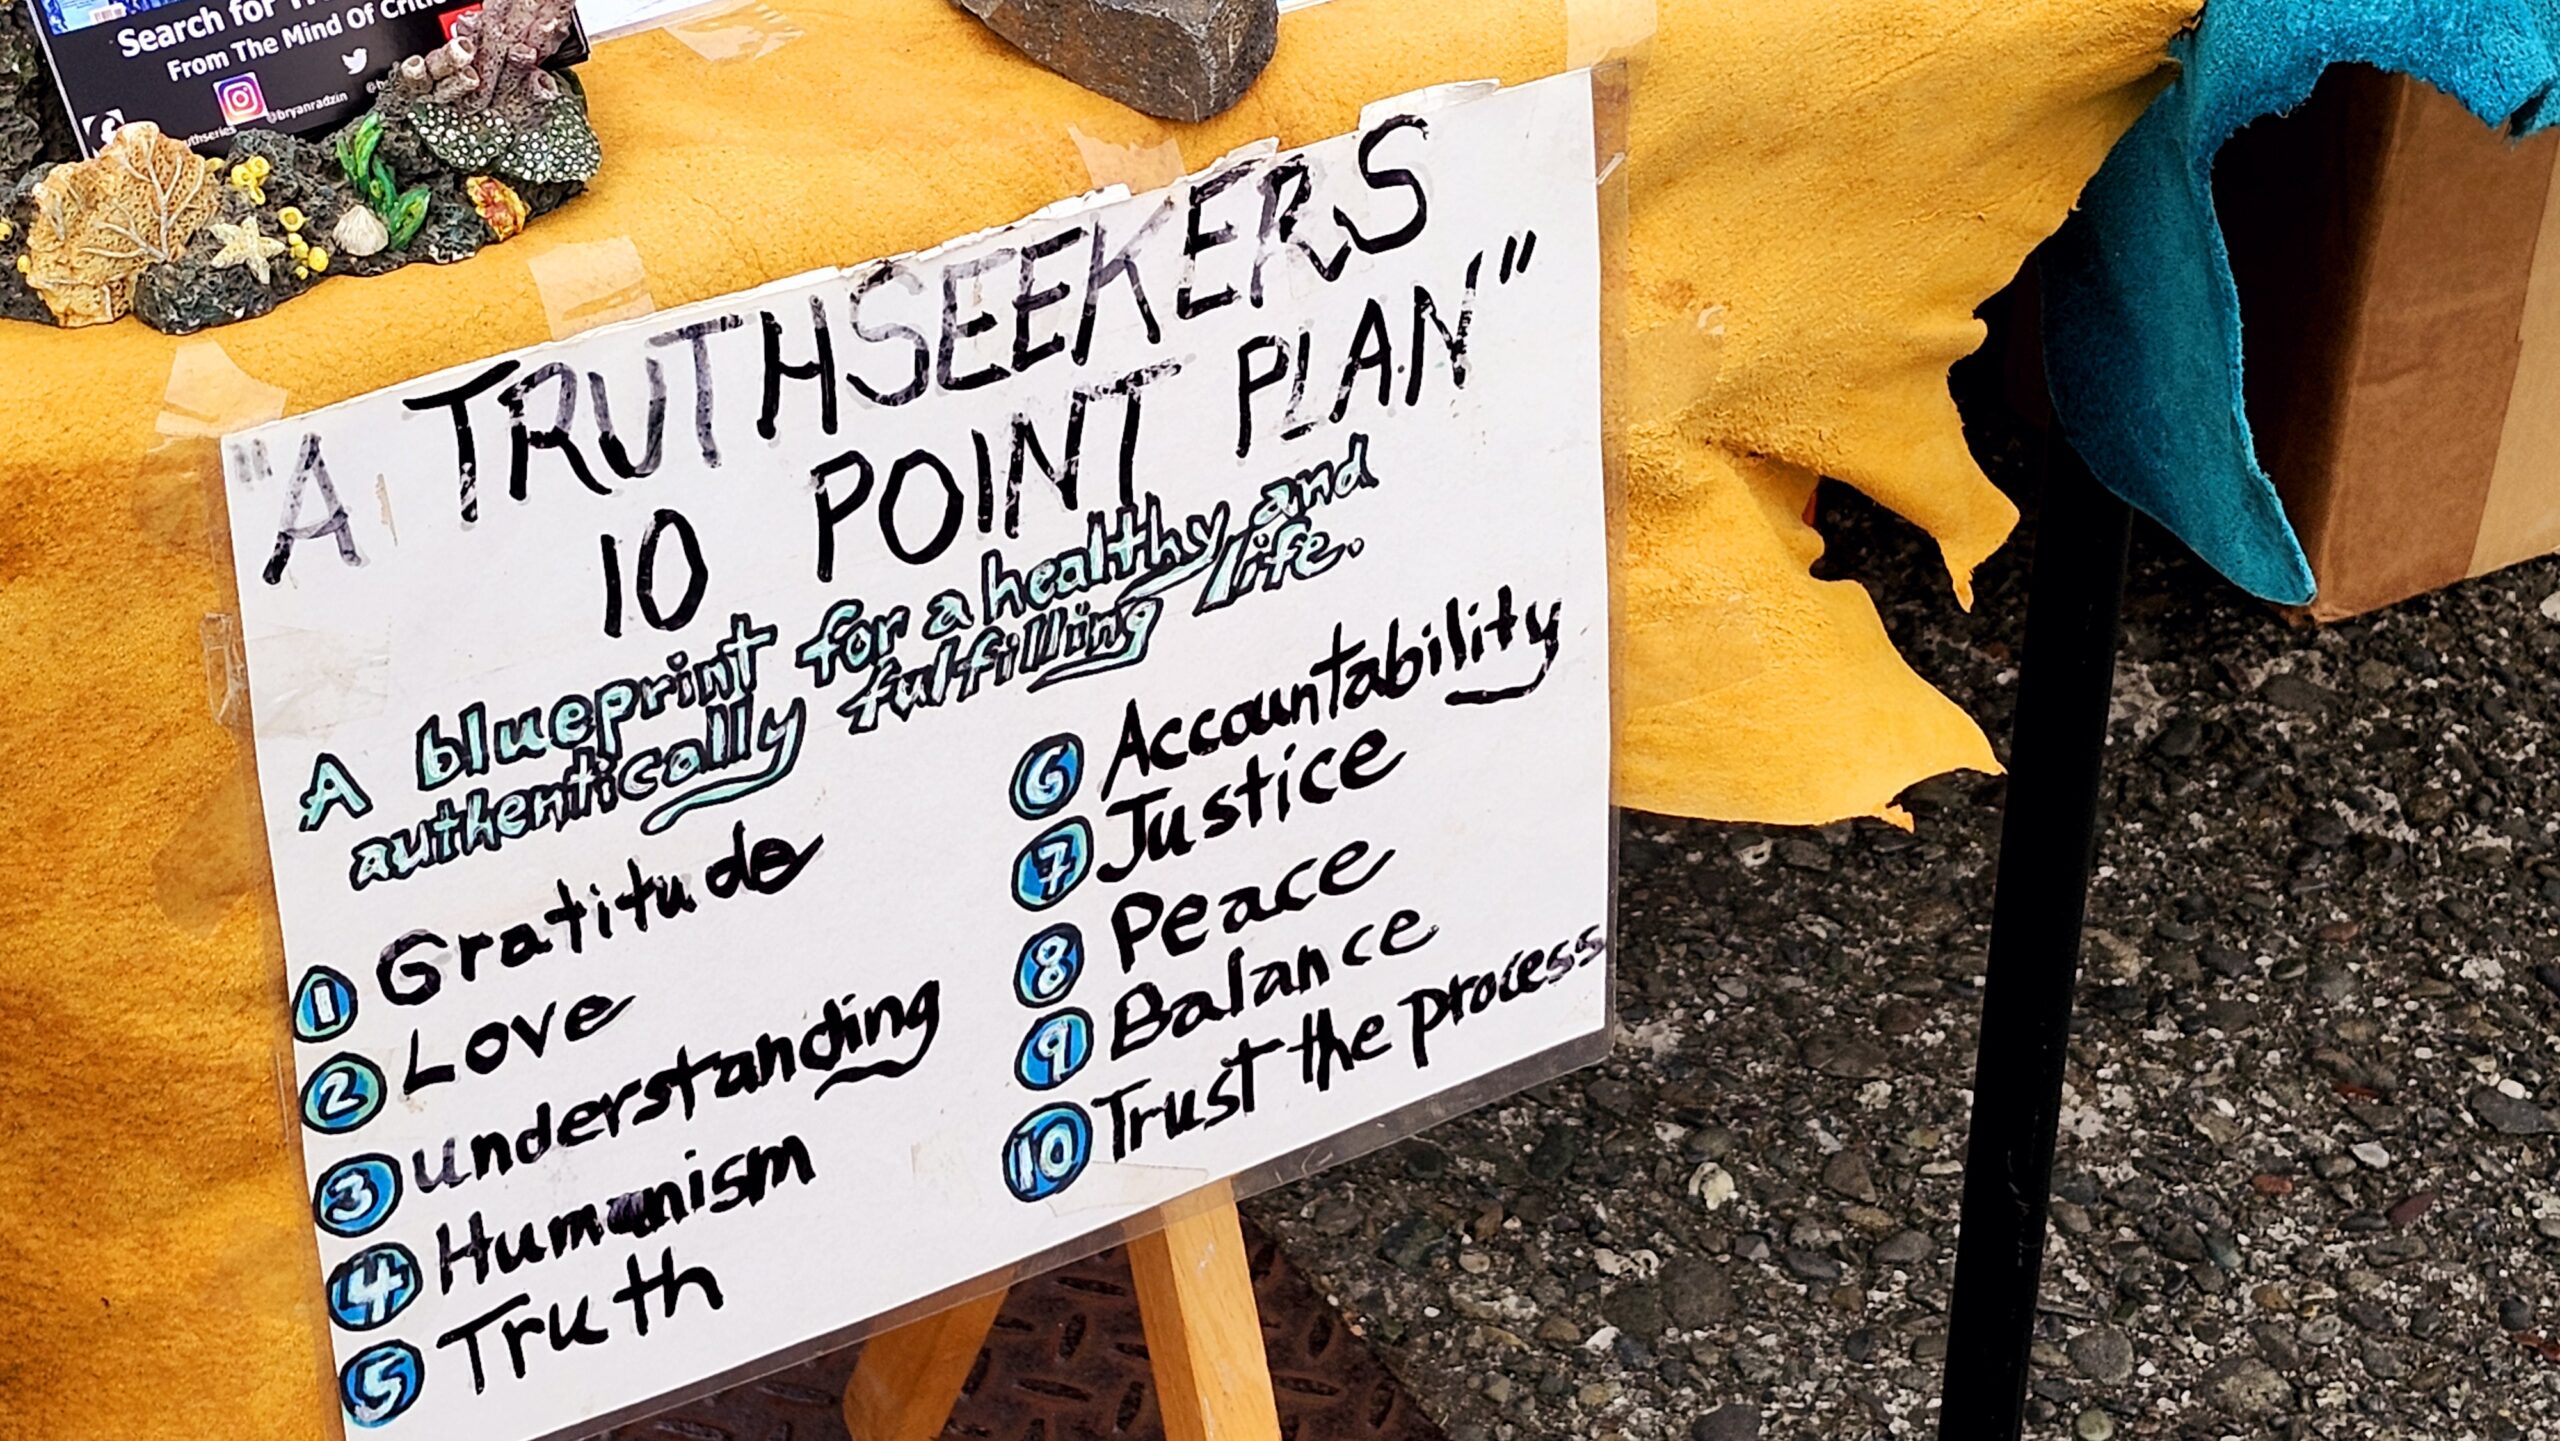 Search for
From The Mind Of
@bryanradzin
"A TRUTHSEEKERS
10 POINT PLAN"
A blueprint for a healthy and
authentically fulfilling life.
1 Gratitude
2 Love
3 understanding
4 Humanism
5 Truth
6 Accountability
7 Justice
8 Peace
9 Balance
10 Trust the process